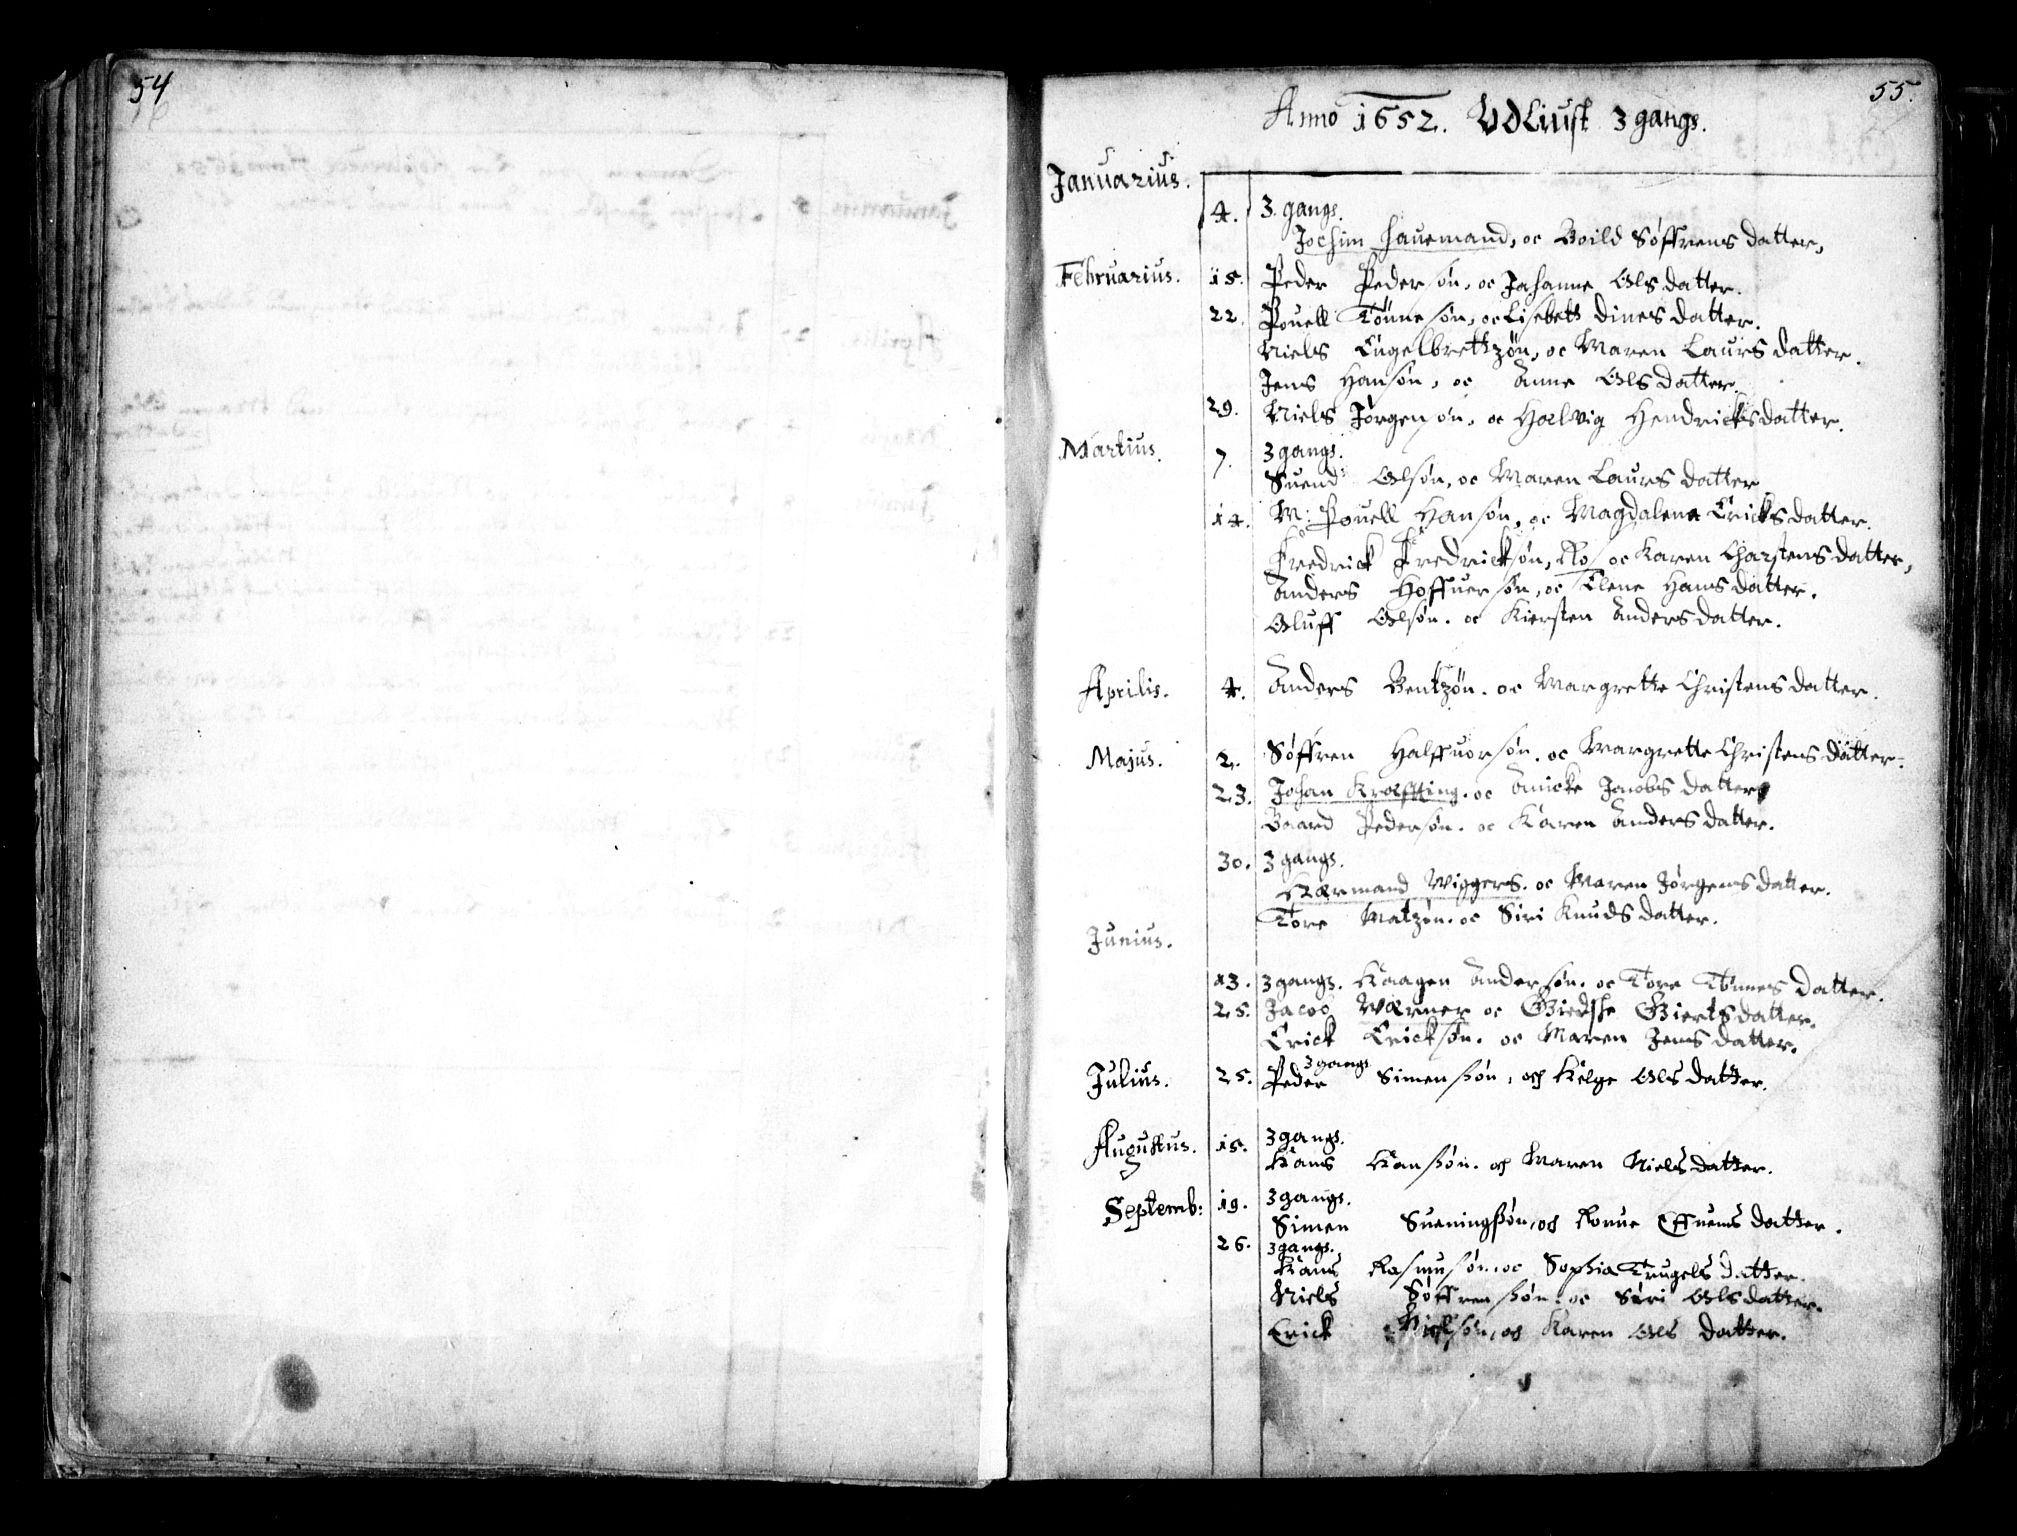 54
55.
Anno 1652. Udliust 3 gangs.
Januarius.
4. 3. gangs.
Jochim Hauemand, oc Boild Søffrens datter,
Februarius. 15. Peder Pedersøn, oc Johanne Ols datter.
22. Pouell Tønnesøn, oc Lisebett Dines datter.
Niels Engelbrettzøn, oc Maren Laurs datter.
Jens Hansøn, oc Anne Ols datter.
29. Niels Jørgensøn, oc Hælvig Hendricksdatter.
Martius. 7. 3 gangs.
Suend Olsøn, oc Maren Laurs datter
14. M: Pouell Hansøn, oc Magdalena Ericks datter.
Fredrick Fredricksøn, Ros oc Karen Charstens datter,
Anders Hoffuersøn, oc Elene Hans datter.
Oluff Olsøn. oc Kiersten Anders datter.
Aprilis. 4. Anders Bentzøn. oc Margrette Christens datter.
Majus. 2. Søffren Halffuorsøn. oc Margrette Christens datter.
23. Johan Kræffting. oc Anicke Jacobs datter
Baard Pedersøn. oc Karen Anders datter.
30. 3 gangs.
Hærmand Wiggers. oc Maren Jørgens datter.
Tore Matzøn. oc Siri Knuds datter.
Junius.
13. 3 gangs. Haagen Andersøn. oc Tore Tønnes datter.
25. Jacob Wærner oc Giedske Gierts datter.
Erick Ericksøn. oc Maren Jens datter.
3 gangs
Julius. 25. Peder Simensøn, och Helge Ols datter.
Augustus. 15. 3 gangs.
Hans Hansøn. och Maren Niels datter.
Septemb: 19. 3 gangs.
Simen Sueningsøn, och Ronue Effuens datter.
26. 3 gangs.
Hans Rasmusøn. oc Sophia Trugels datter.
Niels Søffrensøn. oc Siri Ols datter.
Erick Nielsøn, och Karen Ols datter.